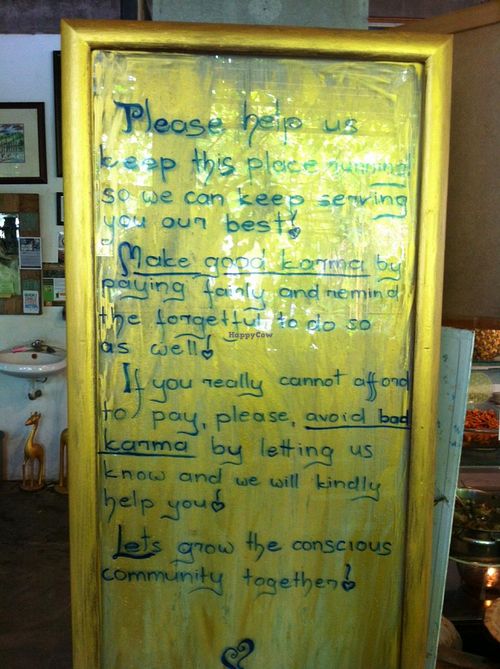 Please help us
keep this place running
so we can keep serving
you our best!
Make good karma by
paying fairly and remind
the forgetful to do so
as well!
HappyCow
If you really cannot afford
to pay, please, avoid bad
karma by letting us
know and we will kindly
help you!
Lets grow the conscious
community together!